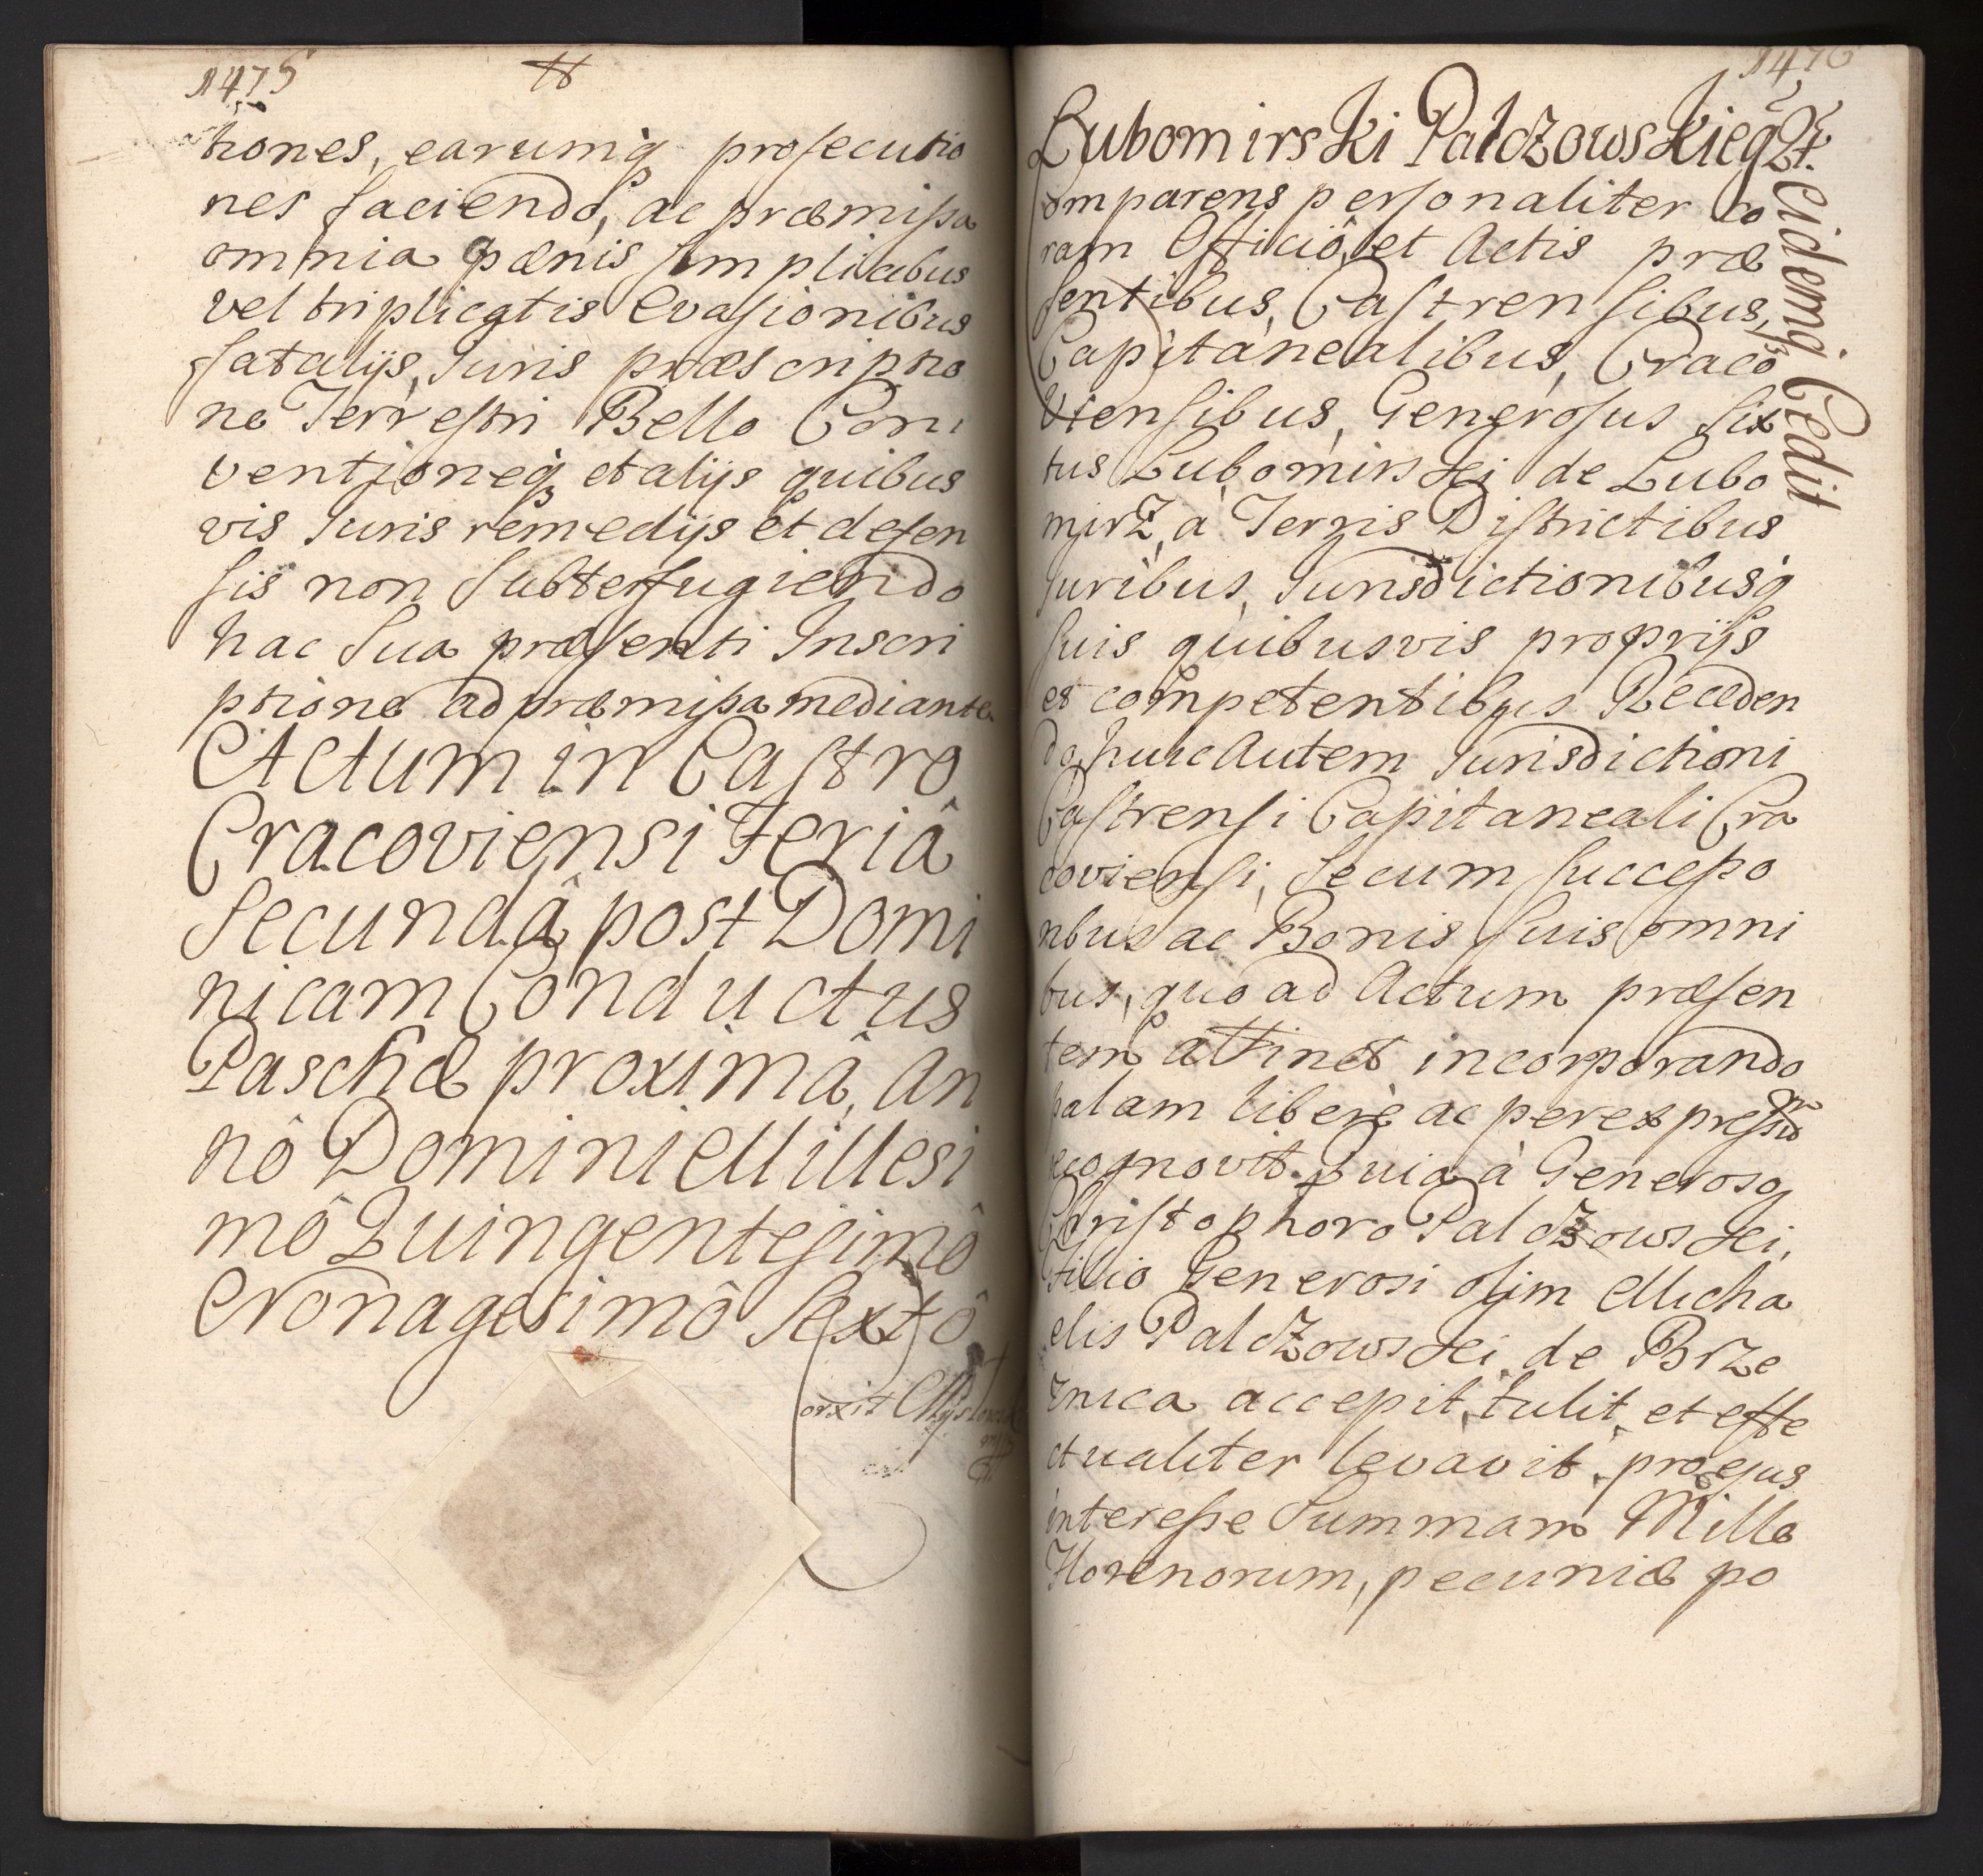 1475
tiones, earumq prosecutio
nes faciendo, ac præmissa
omnia pænis simplicibus
vel triplicatis Evasionibus
fatalijs, Juris præscriptio
ne Terrestri Bello Con
ventioneq et alijs quibus
vis Juris remedijs et defen
sis non Subterfugiendo
hac Sua præsenti Inscri
ptione ad præmissa mediante.
Actum in Castro
Cracoviensi Feriâ
Secundâ post Domi
nicam Conductus
Paschæ proximâ, An
nô Domini Millesi
mô Quingentesimô
Nonagesimô Sextô
1476
Lubomirski Palczowskieg Qt.
omparens personaliter co
ram Officiô et Actis præ
sentibus, Castrensibus,
Capitanealibus, Craco
viensibus, Generosus Six
tus Lubomirski de Lubo
mirz, a Terris Districtibus
Juribus, Jurisdictionibusq
suis quibusvis proprijs
et competentibus Receden
do, huic Autem Jurisdictioni
Castrensi Capitaneali Cra
coviensi, Secum Successo
ribus ac Bonis suis omni
bus, quo ad Actum præsen
tem attinet incorporando
palam liberè ac per expressu
m
recognovit. Quia à Generoso
Christophoro Palczowski,
Filio Generosi olim Micha
elis Palczowski de Brze
znica accepit, tulit, et effe
ctualiter levavit, pro ejus
interesse Summam Mille
Florenorum, pecuniæ po
eidemq Cedit